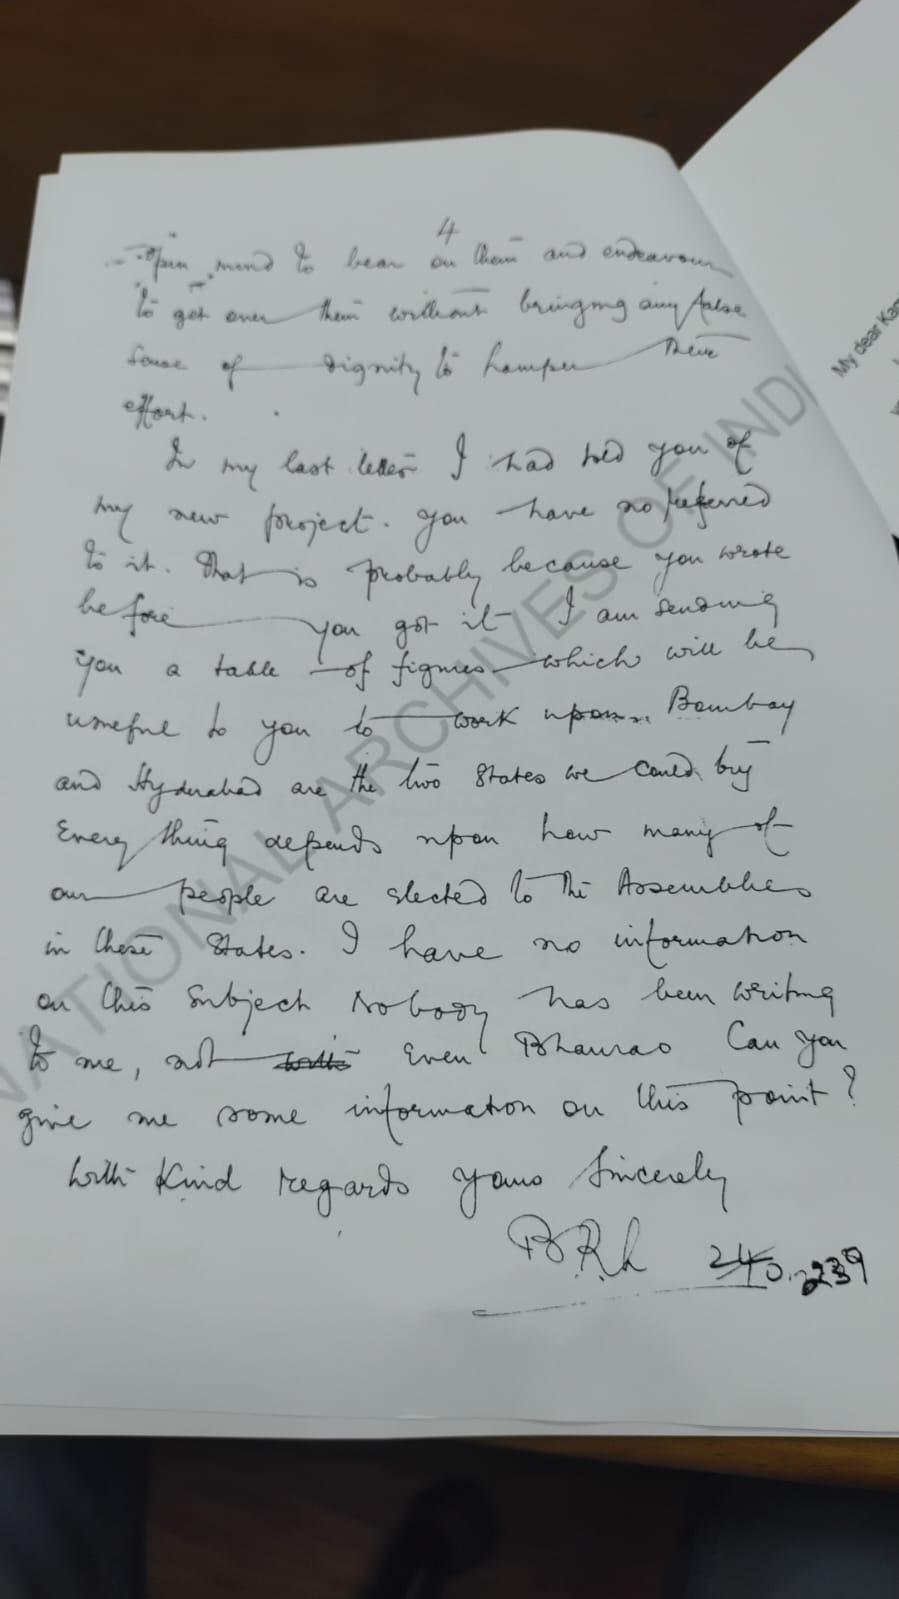 4
open mind to bear on them and endeavour
to get over them without bringing any false
sense of dignity to hamper their
effort.
In my last letter I had told you of
my new project. You have no referred
to it. That is probably because you wrote
before you got it I am sending
you a table of figures which will be
useful to you to work upon. Bombay
and Hyderabad are the two States we could try
Every thing depends upon how many of
our people are elected to the Assemblies
in these States. I have no information
on this subject Nobody has been writing
to me, not even Bhaurao Can you
give me some information on this point?
With Kind regards yours Sincerely
NATIONAL ARCHIVES OF INDI
My dear Kam